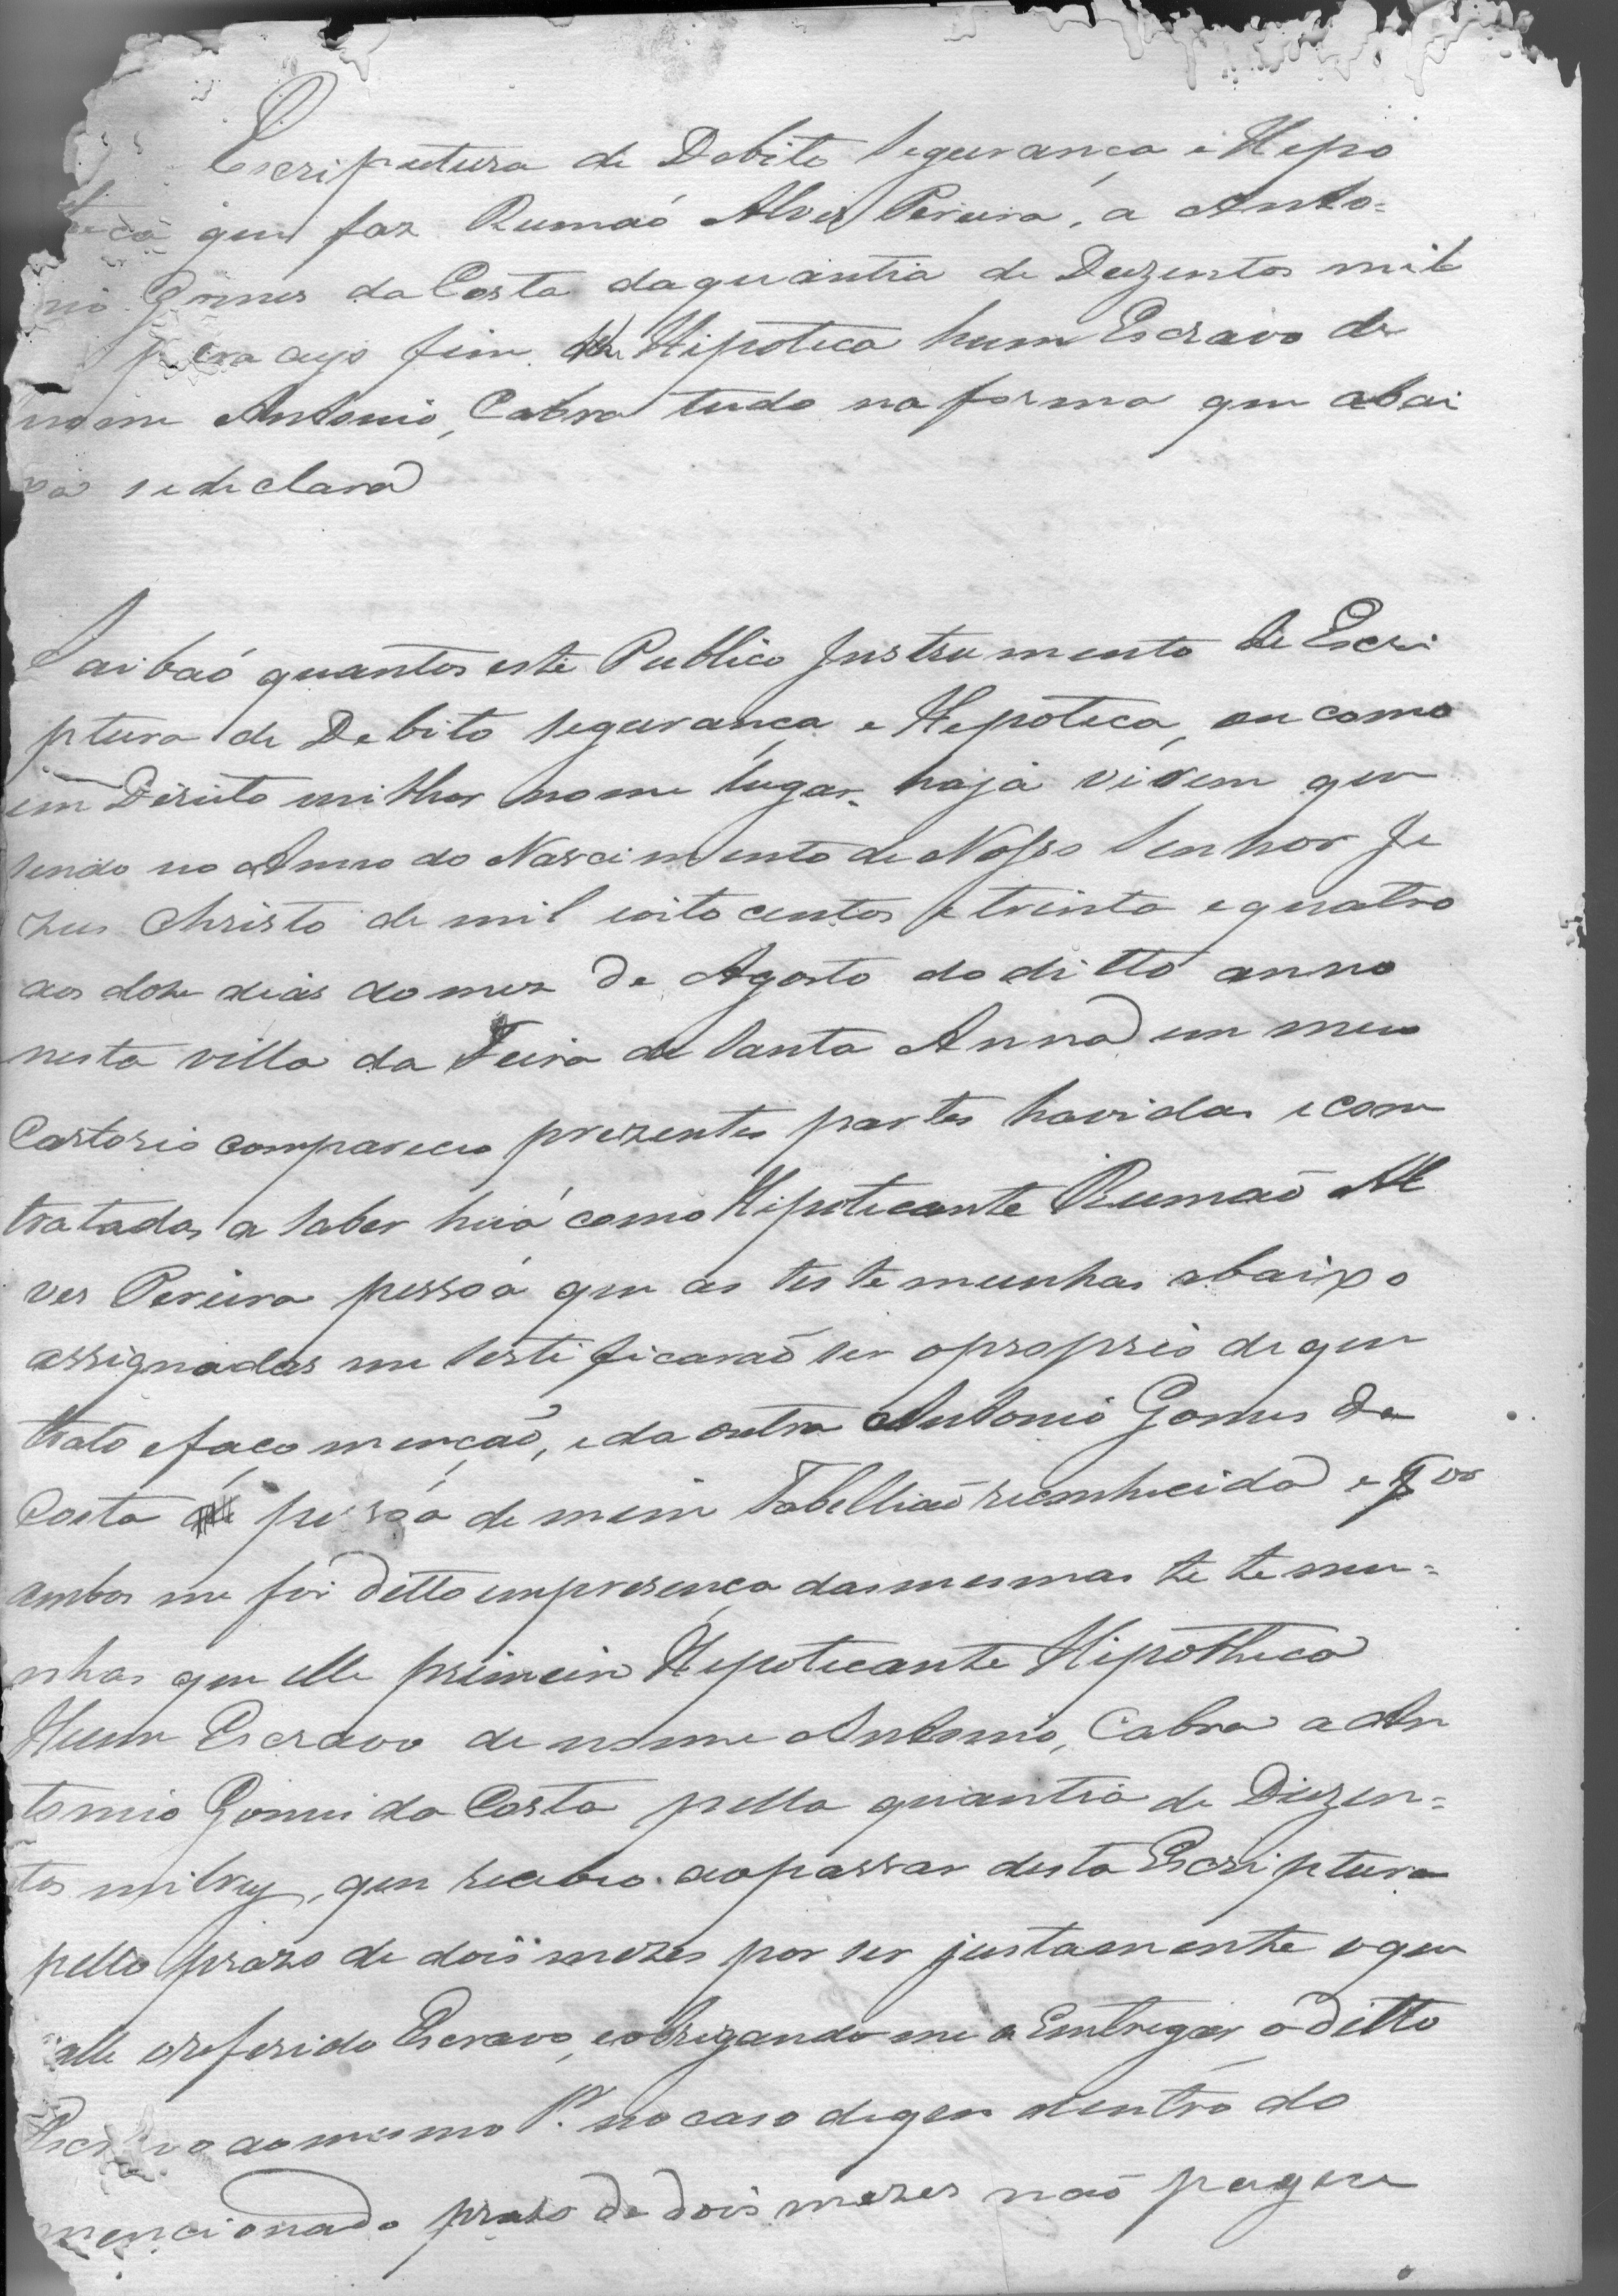 Escriputura de Debito Segurança e Hepo
teca que faz Rumaõ Alves Pereira, a Anto=
nio Gomes da Costa daquantia de Duzentos mil
para cujo fim Hipoteca hum Escravo de
nome Antonio, Cabra tudo na forma que abai
xo sedeclara
Saibaõ quantos este Publico Instrumento de Escri
ptura de Debito segurança e Hepoteca, ou como
em Direito milhor nome lugar haja virem que
sendo no Anno do Nascimento de Nosso Senhor Je
zus Christo de mil oito centos e trinta e quatro
aos doze dias do mez de Agosto do ditto anno
nesta villa da Feira de Santa Anna em meu
Cartorio compareceo prezentes partes havidas e con
tratadas a saber huã como Hipotecante Rumaõ Al
ves Pereira pessoa que as testemunhas abaixo
assignadas me sertificaraõ ser oproprio de que
trato efaço mençaõ, eda outra Antonio Gomes da
Costa pessoa de mim Tabelliaõ reconhecida e por
ambos me foi ditto empresença dasmesmas te temu=
nhas que elle primeiro Hepotecante Hipotheca
Hum Escravo de nome Antonio, Cabra a An
tonio Gomes da Costa pella quantia de Duzen=
tos milrey, que recebeo aopassar desta Escriptura
pello prazo de dois mezes por ser justamente oque
valle oreferido Escravo, eobrigandome a Entregar o ditto
Escravo aomesmo P. no caso deque dentro do
mencionado prazo de dois mezes naõ pague